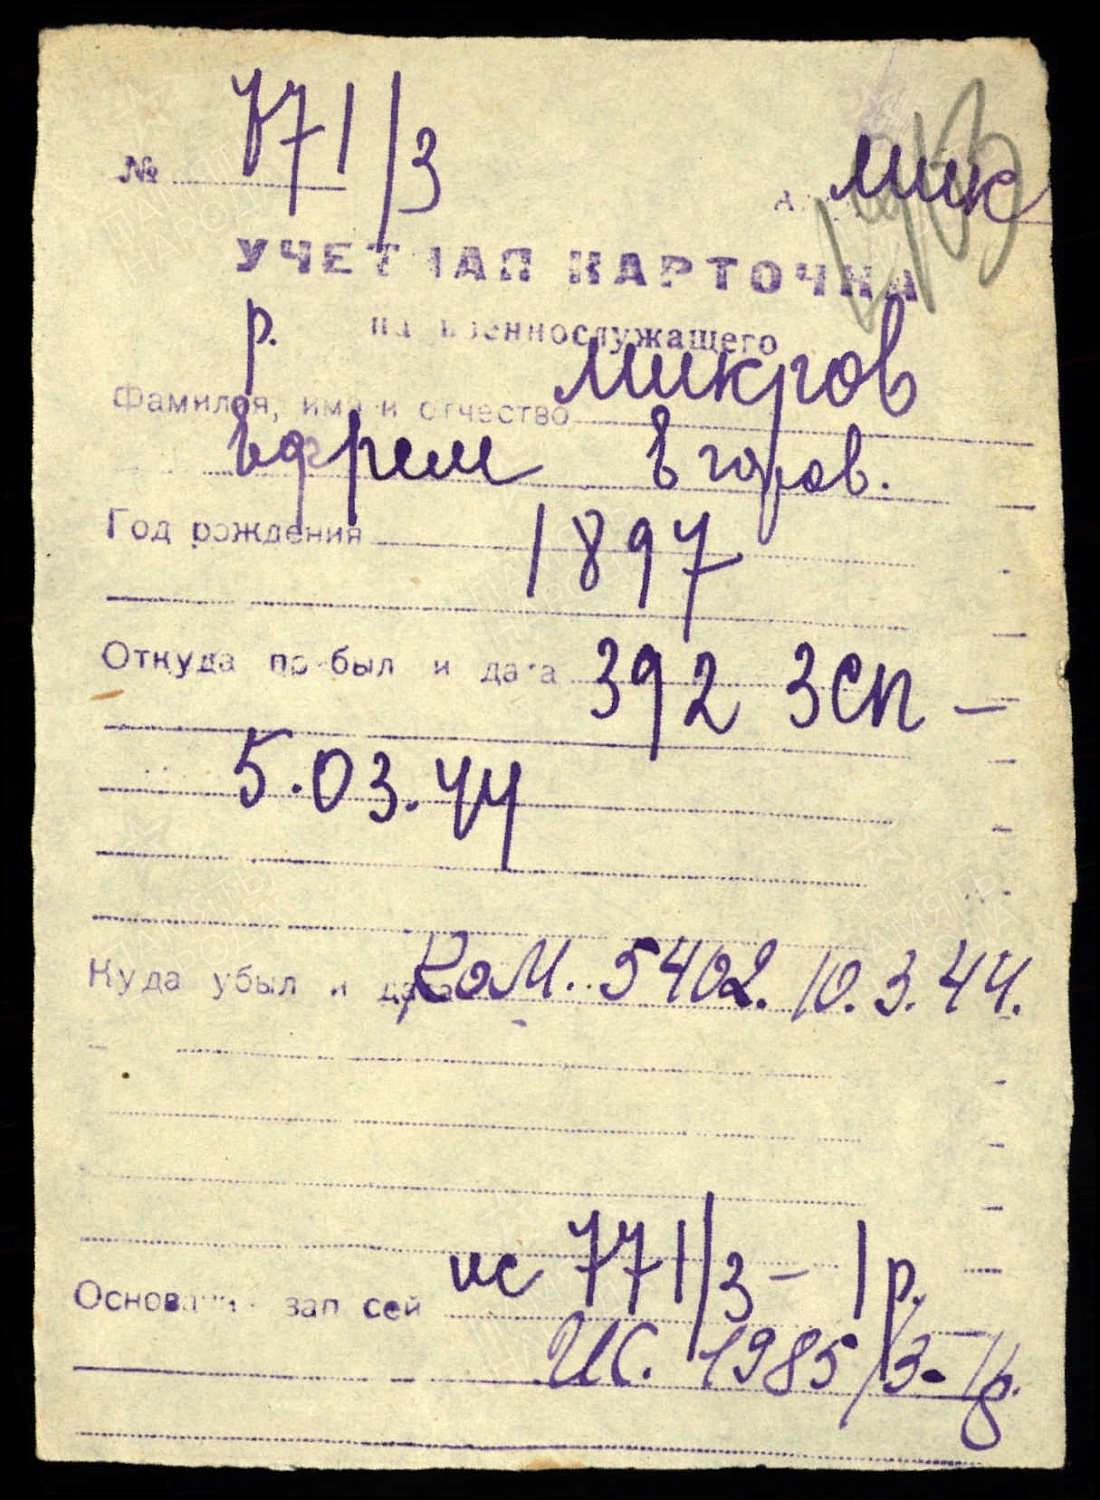 № 771/3
Мик
УЧЕТНАЯ КАРТОЧКА
р. на военнослужащего
Фамилия, имя и отчество Микров
Ефрем Егоров.
Год рождения 1897
Откуда прибыл и дата 392 ЗСП —
5.03.44
Куда убыл и дата Ком. 5402. 10.3.44.
ис 771/3 — 1р.
Основание записей
Ис. 1985/3 - 1р.